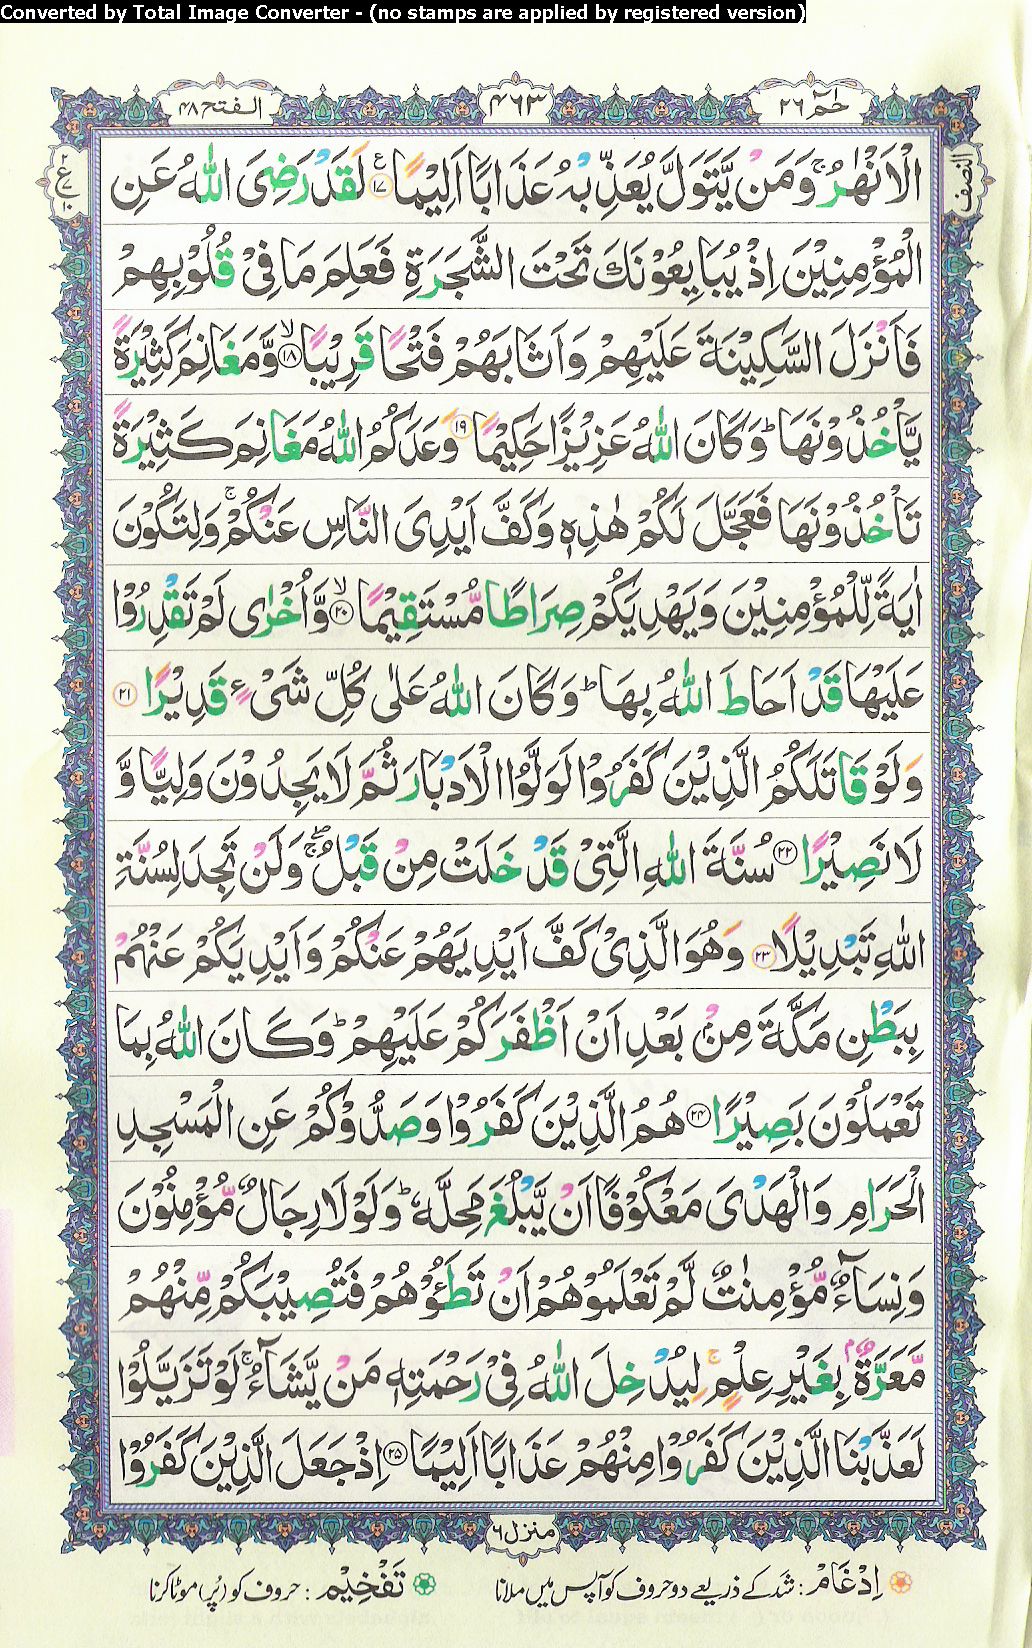 Converted by Total Image Converter - (no stamps are applied by registered version)
حٰمٓ ٢٦
٤٦٣
الفتح ٤٨
النصف
٢
ع
٧
١٠
الْاَنْهٰرُ ۚ وَمَنْ يَّتَوَلَّ يُعَذِّبْهُ عَذَابًا اَلِيْمًا ﴿١٧﴾ لَقَدْ رَضِىَ اللّٰهُ عَنِ
الْمُؤْمِنِيْنَ اِذْ يُبَايِعُوْنَكَ تَحْتَ الشَّجَرَةِ فَعَلِمَ مَا فِىْ قُلُوْبِهِمْ
فَاَنْزَلَ السَّكِيْنَةَ عَلَيْهِمْ وَاَثَابَهُمْ فَتْحًا قَرِيْبًا ۙ﴿١٨﴾ وَّمَغَانِمَ كَثِيْرَةً
يَّاْخُذُوْنَهَا ؕ وَكَانَ اللّٰهُ عَزِيْزًا حَكِيْمًا ﴿١٩﴾ وَعَدَكُمُ اللّٰهُ مَغَانِمَ كَثِيْرَةً
تَاْخُذُوْنَهَا فَعَجَّلَ لَكُمْ هٰذِهٖ وَكَفَّ اَيْدِىَ النَّاسِ عَنْكُمْ ۚ وَلِتَكُوْنَ
اٰيَةً لِّلْمُؤْمِنِيْنَ وَيَهْدِيَكُمْ صِرَاطًا مُّسْتَقِيْمًا ۙ﴿٢٠﴾ وَّاُخْرٰى لَمْ تَقْدِرُوْا
عَلَيْهَا قَدْ اَحَاطَ اللّٰهُ بِهَا ؕ وَكَانَ اللّٰهُ عَلٰى كُلِّ شَىْءٍ قَدِيْرًا ﴿٢١﴾
وَلَوْ قَاتَلَكُمُ الَّذِيْنَ كَفَرُوْا لَوَلَّوُا الْاَدْبَارَ ثُمَّ لَا يَجِدُوْنَ وَلِيًّا وَّ
لَا نَصِيْرًا ﴿٢٢﴾ سُنَّةَ اللّٰهِ الَّتِىْ قَدْ خَلَتْ مِنْ قَبْلُ ۖۚ وَلَنْ تَجِدَ لِسُنَّةِ
اللّٰهِ تَبْدِيْلًا ﴿٢٣﴾ وَهُوَ الَّذِىْ كَفَّ اَيْدِيَهُمْ عَنْكُمْ وَاَيْدِيَكُمْ عَنْهُمْ
بِبَطْنِ مَكَّةَ مِنْۢ بَعْدِ اَنْ اَظْفَرَكُمْ عَلَيْهِمْ ؕ وَكَانَ اللّٰهُ بِمَا
تَعْمَلُوْنَ بَصِيْرًا ﴿٢٤﴾ هُمُ الَّذِيْنَ كَفَرُوْا وَصَدُّوْكُمْ عَنِ الْمَسْجِدِ
الْحَرَامِ وَالْهَدْىَ مَعْكُوْفًا اَنْ يَّبْلُغَ مَحِلَّهٗ ؕ وَلَوْلَا رِجَالٌ مُّؤْمِنُوْنَ
وَنِسَآءٌ مُّؤْمِنٰتٌ لَّمْ تَعْلَمُوْهُمْ اَنْ تَطَـُٔوْهُمْ فَتُصِيْبَكُمْ مِّنْهُمْ
مَّعَرَّةٌۢ بِغَيْرِ عِلْمٍ ۚ لِيُدْخِلَ اللّٰهُ فِىْ رَحْمَتِهٖ مَنْ يَّشَآءُ ۚ لَوْ تَزَيَّلُوْا
لَعَذَّبْنَا الَّذِيْنَ كَفَرُوْا مِنْهُمْ عَذَابًا اَلِيْمًا ﴿٢٥﴾ اِذْ جَعَلَ الَّذِيْنَ كَفَرُوْا
منزل ٦
اِدْغَام : شد کے ذریعے دو حروف کو آپس میں ملانا
تَفْخِيْم : حروف کو (پُر) موٹا کرنا